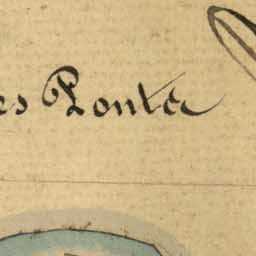 es Ponte